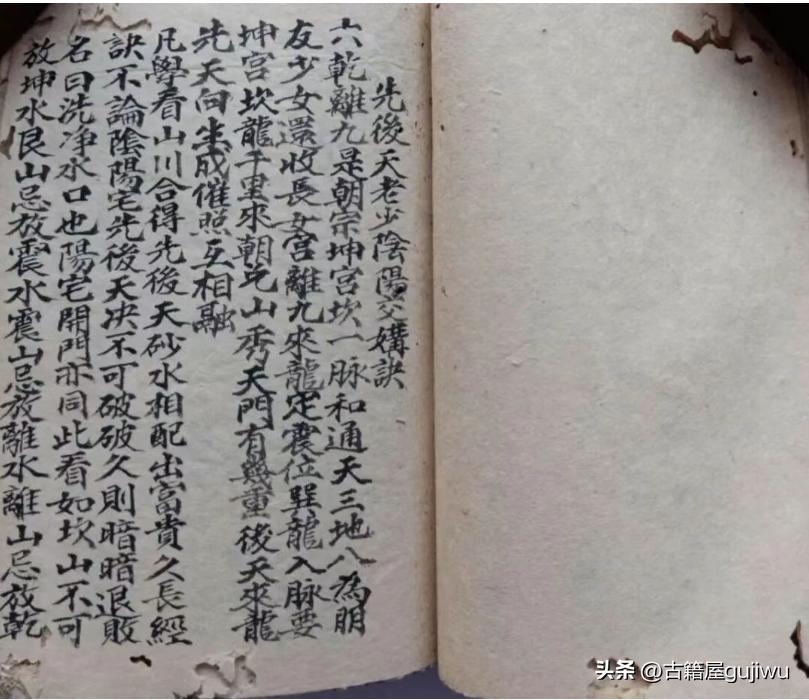 先後天老少陰陽交媾訣
六乾離九是朝宗坤宮坎一脉和通天三地八為朋
友少女還收長女宮離九來龍定震位巽龍入脉要
坤宮坎龍千里來朝兌山秀天門有幾重後天來龍
先天向生成催照互相融
凡學看山川合得先後天砂水相配出富貴久長經
訣不論陰陽宅先後天决不可破破久則暗暗退敗
名曰洗净水口也陽宅開門亦同此看如坎山不可
放坤水艮山忌放震水震山忌放離水離山忌放乾
头条 @古籍屋gujiwu